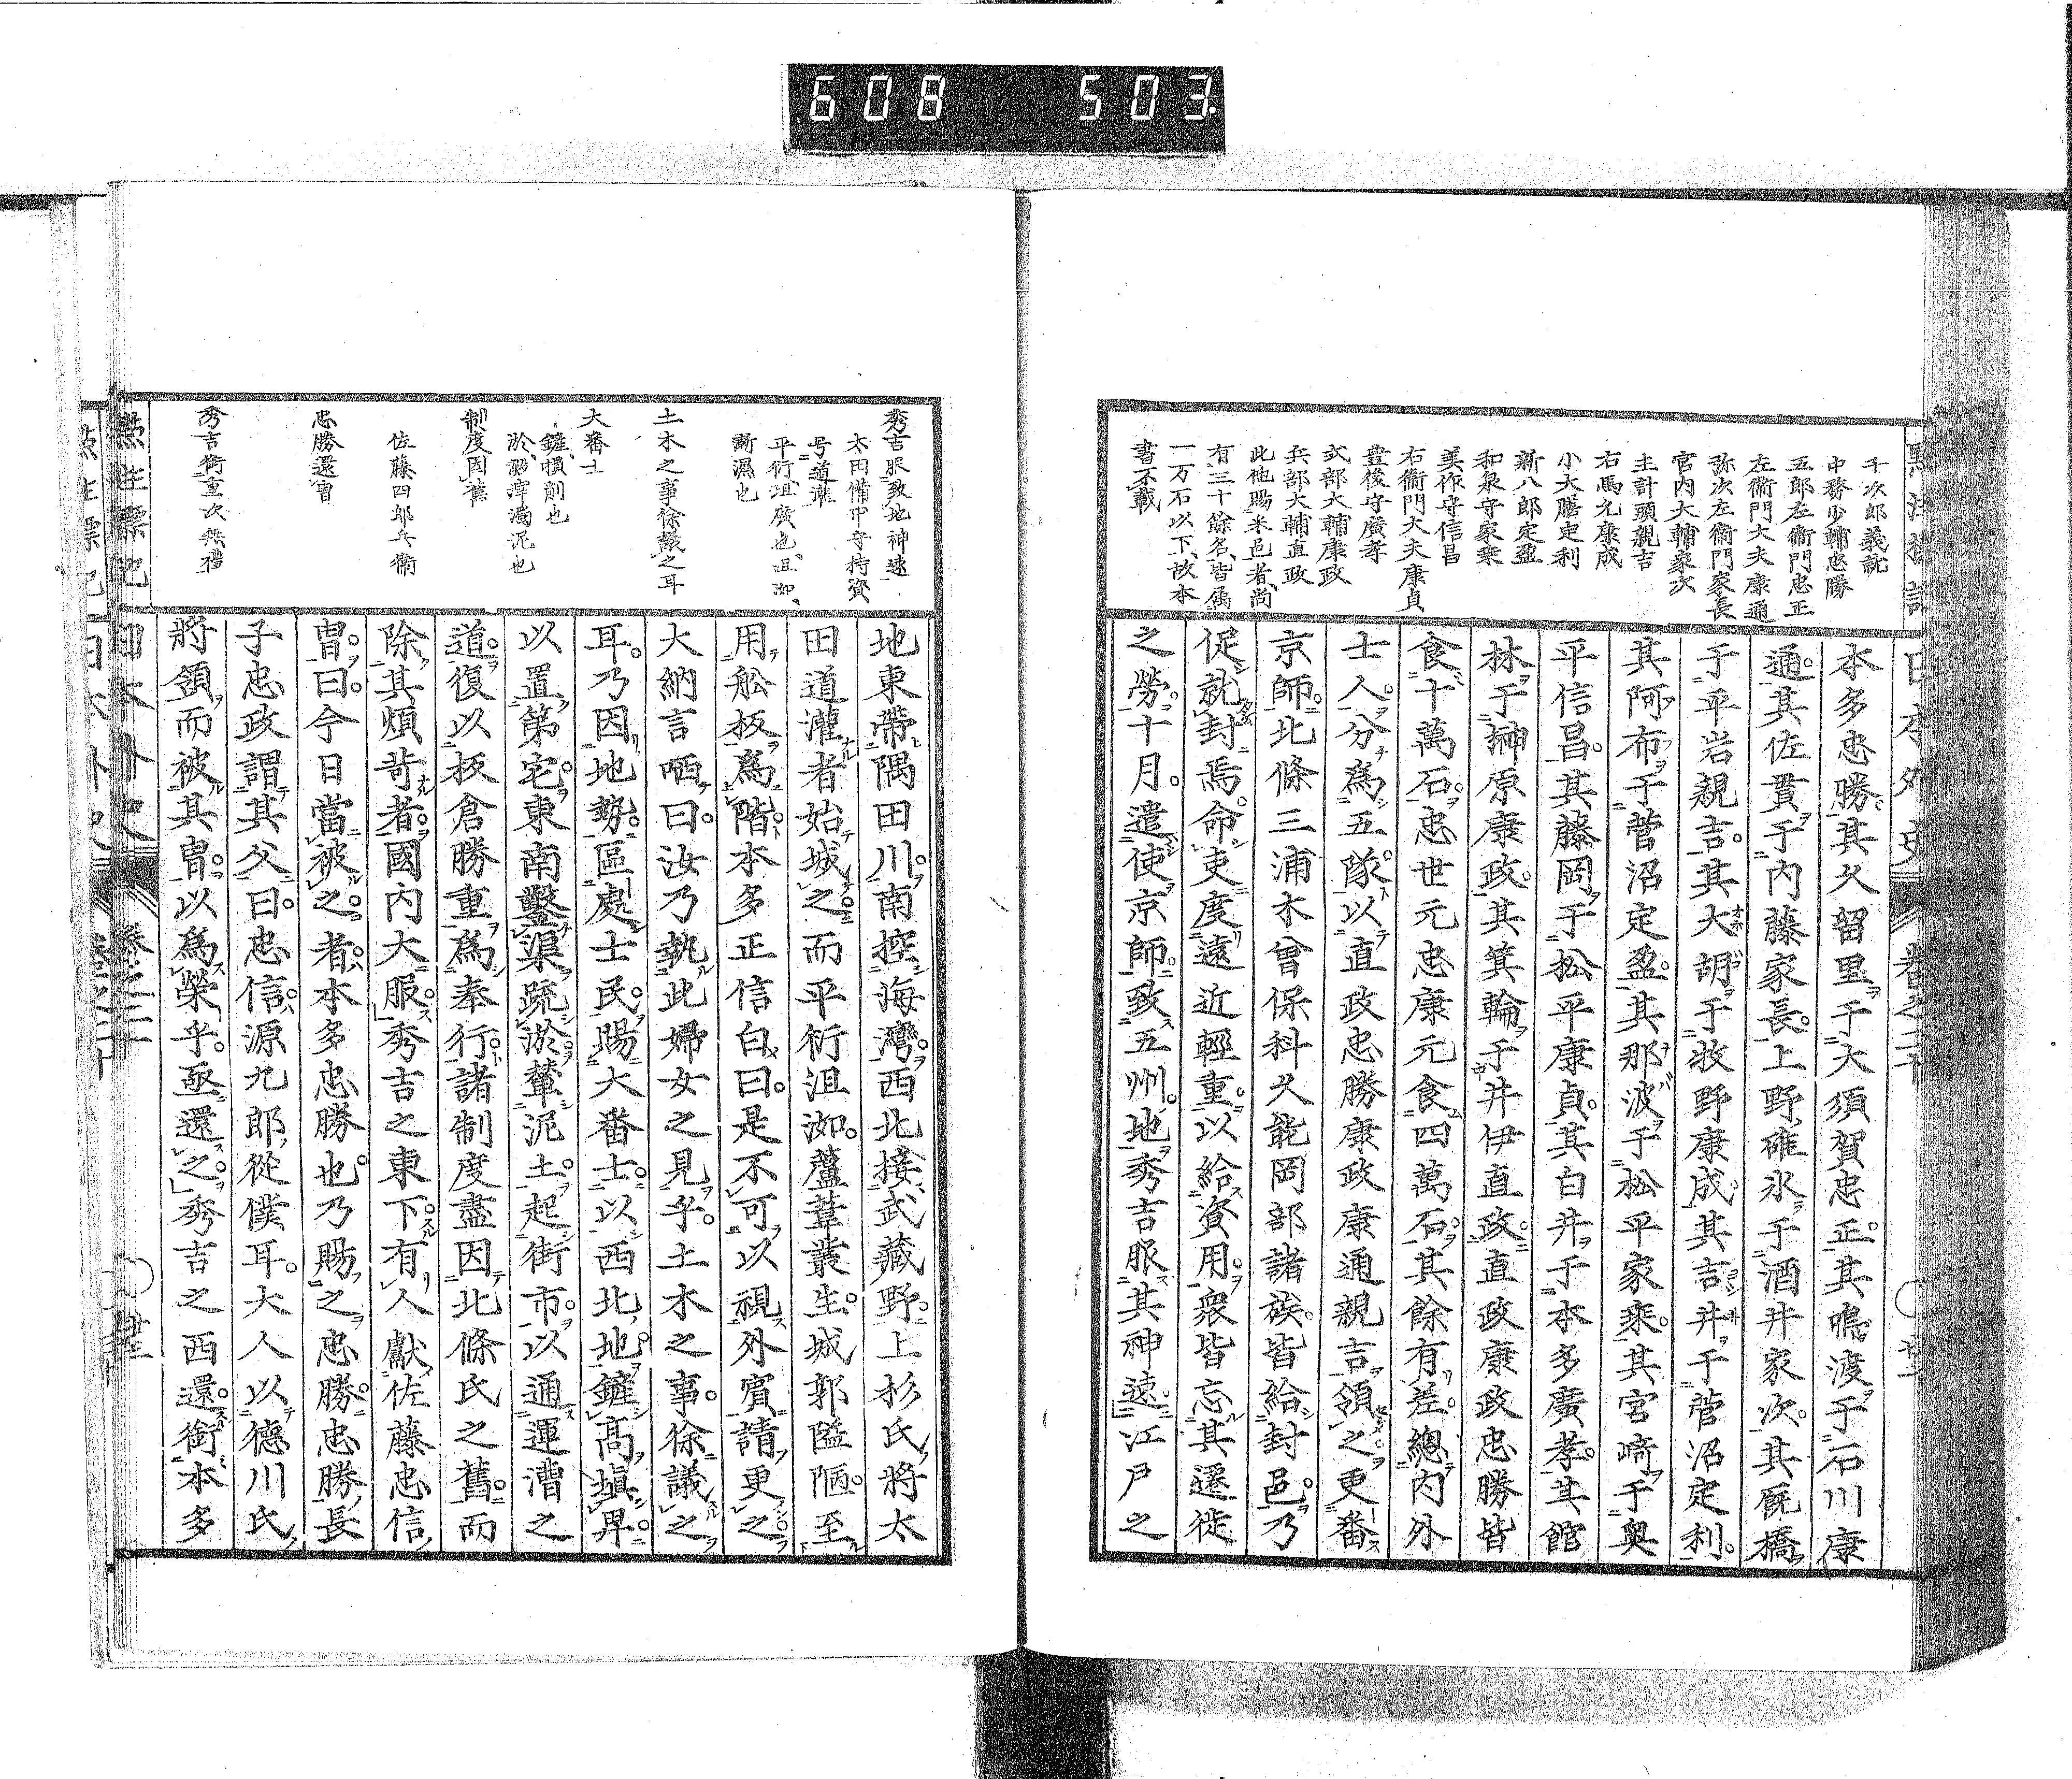 608 503
日本外史 卷之二十
千次郎義訛
中務少輔忠勝
五郎左衞門忠正
左衞門大夫康通
弥次左衞門家長
宮内大輔家次
主計頭親吉
右馬允康成
小大膳定利
新八郎定盈
和泉守家乗
美作守信昌
右衞門大夫康貞
豊後守廣孝
式部大輔康政
兵部大輔直政
此他賜米邑者、尚
有三十餘名、皆属
一万石以下、故本
書不載
本多忠勝。其久留里于大須賀忠正。其鳴渡于石川康
通。其佐貫于内藤家長。上野碓氷于酒井家次。其厩橋
于平岩親吉。其大胡于牧野康成。其吉井于菅沼定利。
其阿布于菅沼定盈。其那波于松平家乘。其宮崎于奥
平信昌。其藤岡于松平康貞。其白井于本多廣孝。其館
林于榊原康政。其箕輪于井伊直政。直政康政忠勝皆
食十萬石。忠世元忠康元食四萬石。其餘有差。總内外
士人。分爲五隊。以直政忠勝康政康通親吉領之更番
京師。北條三浦木曾保科久能岡部諸族。皆給封邑。乃
促就封焉。命吏度遠近輕重。以給資用。衆皆忘其遷徙
之勞。十月。遣使京師。致五州。地秀吉服其神速。江戸之
秀吉服致地神速
太田備中守持資
号道灌
平衍、沮廣也、沮洳、
漸濕也
土木之事徐議之耳
大番士
鏟、損削也
淤、澱滓濁泥也
制度因舊
佐藤四郎兵衞
忠勝還冑
秀吉銜重次無禮
地東帶隅田川。南控海灣。西北接武藏野。上杉氏將太
田道灌者始城之。而平衍沮洳。蘆葦叢生。城郭隘陋。至
用舩板爲階。本多正信白曰。是不可以視外賓。請更之。
大納言哂曰。汝乃執此婦女之見乎。土木之事。徐議之
耳。乃因地勢。區處士民。賜大番士。以西北地。鏟高塡卑。
以置第宅。東南鑿渠疏淤。輦泥土。起街市。以通運漕之
道。復以板倉勝重爲奉行。諸制度盡因北條氏之舊。而
除其煩苛者。國内大服。秀吉之東下。有人獻佐藤忠信
冑。曰。今日當被之者。本多忠勝也。乃賜之忠勝。忠勝長
子忠政謂其父曰。忠信。源九郎從僕耳。大人以德川氏
將領而被其冑。以爲榮乎。亟還之。秀吉之西還。銜本多
點註標記 日本外史 卷之二十